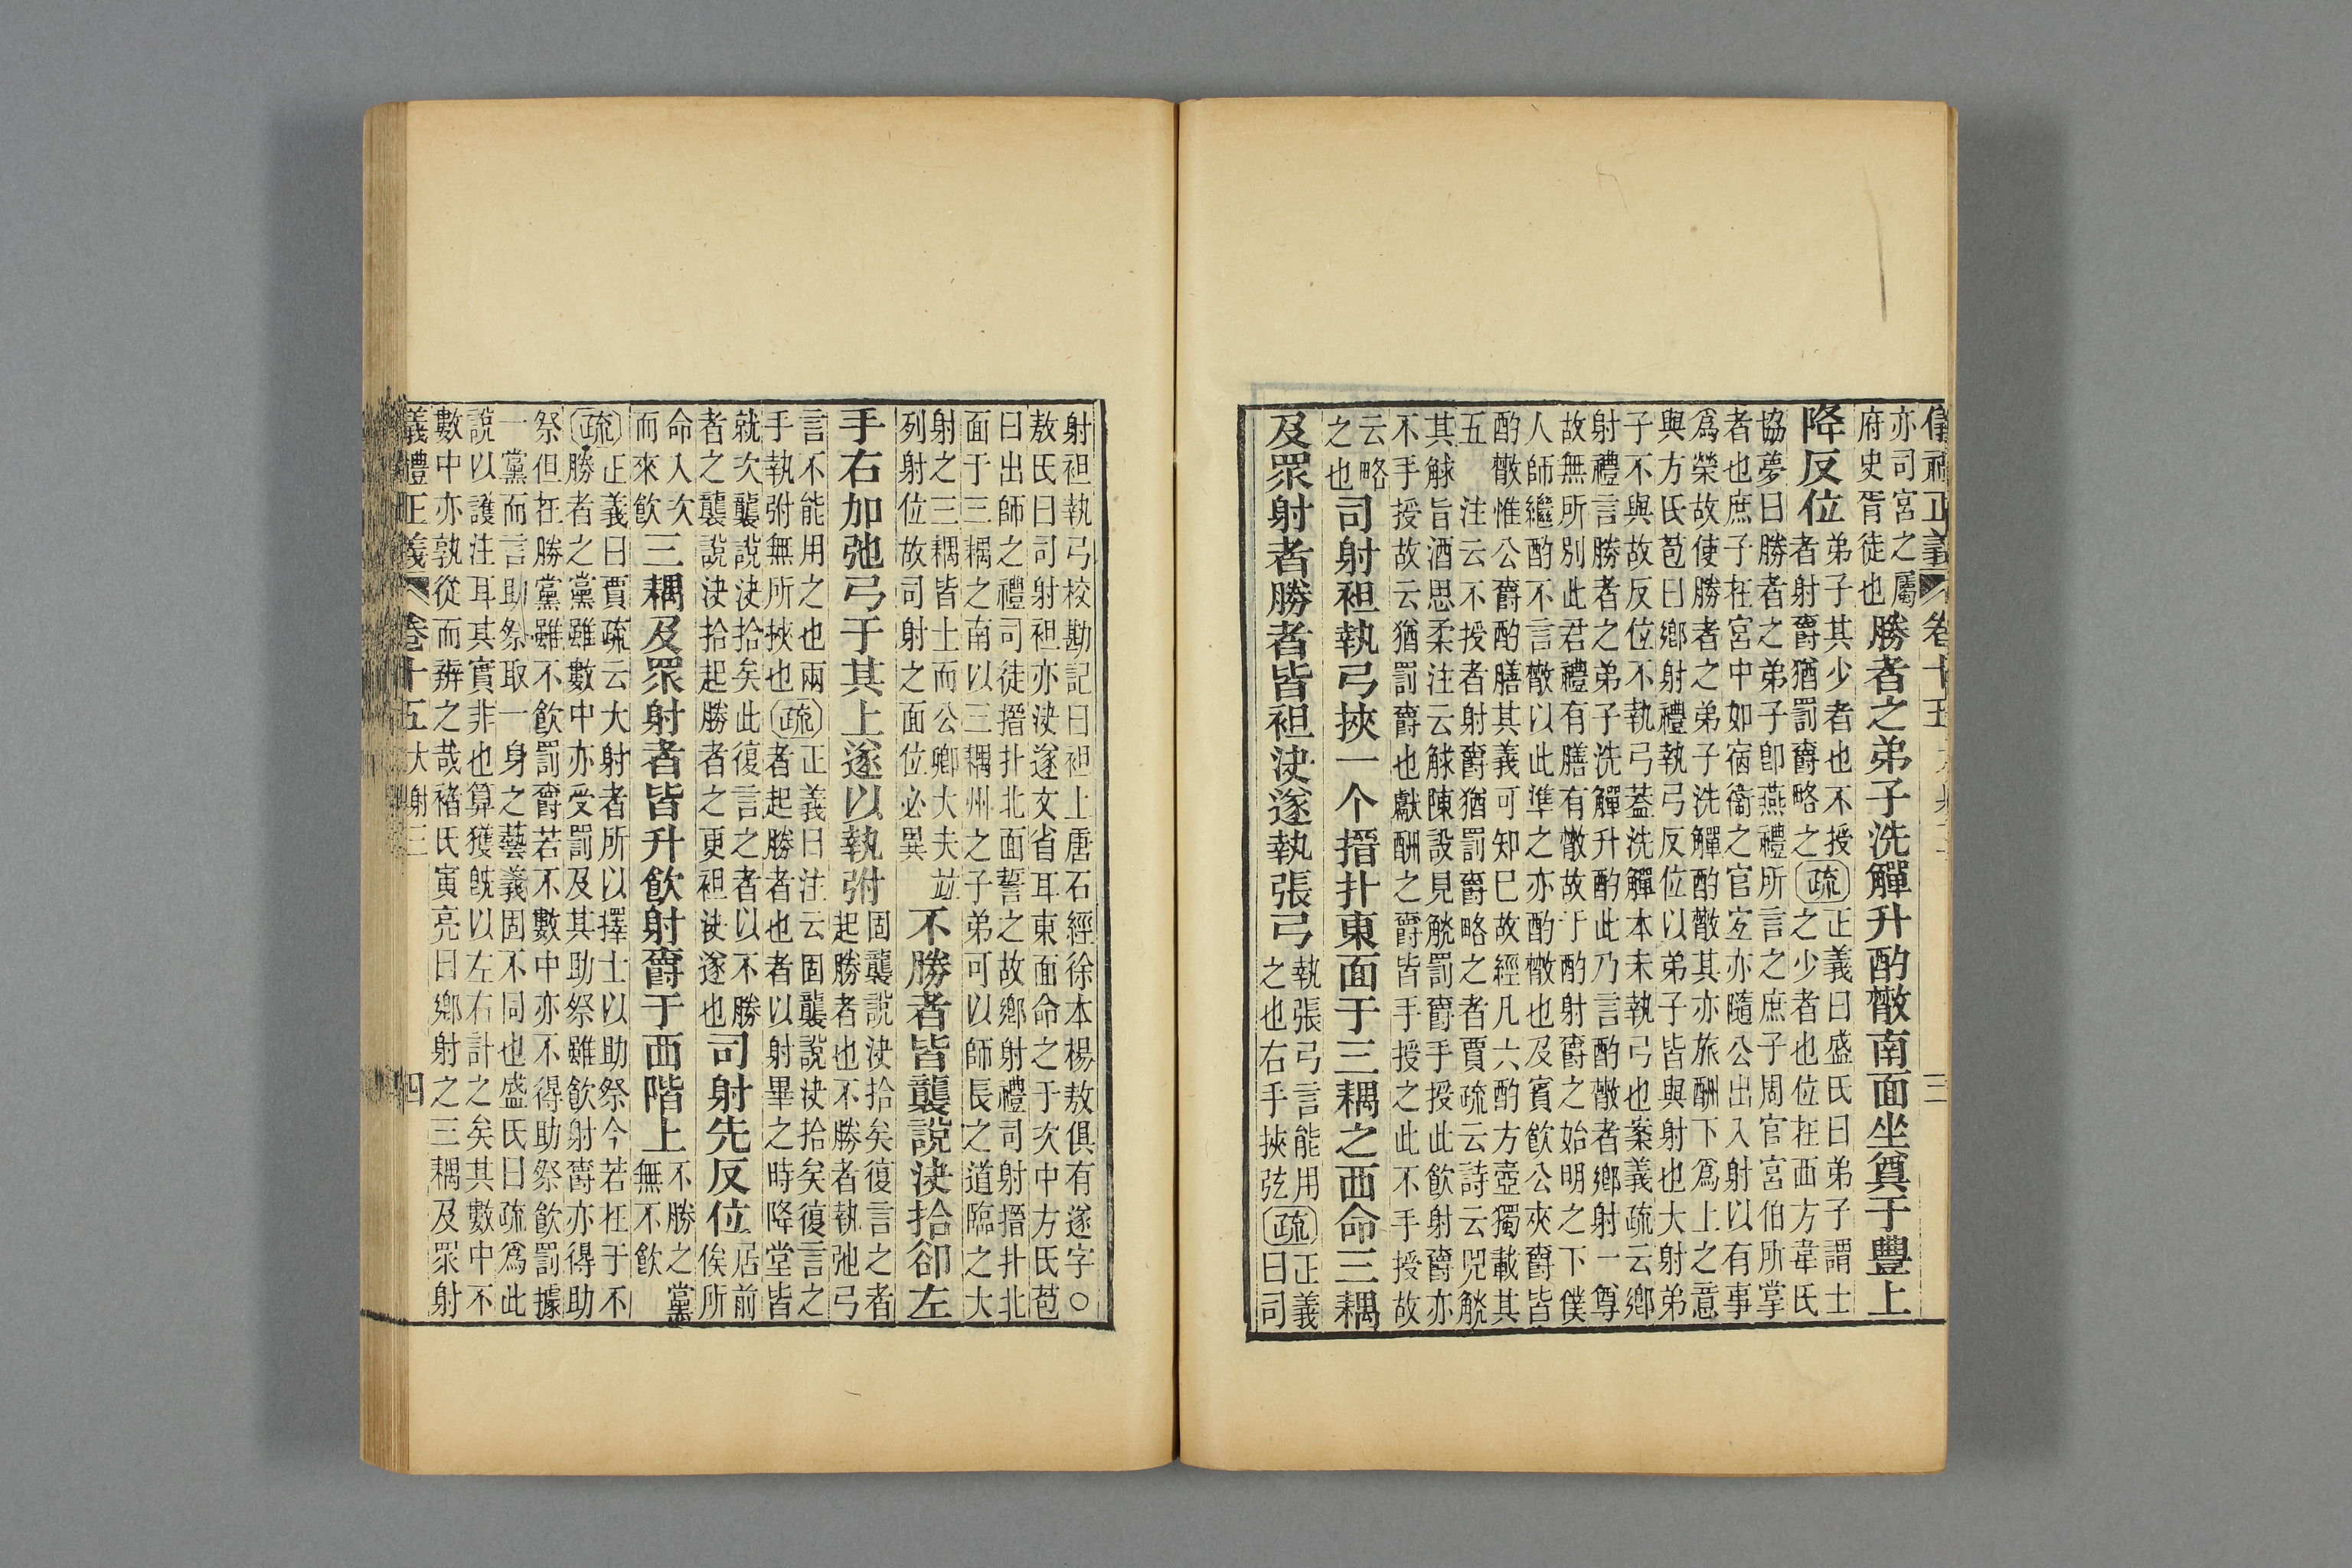 儀禮正義 卷十五 大射三 三
亦司宮之屬
府史胥徒也
勝者之弟子洗觶升酌散南面坐奠于豐上
降反位
弟子其少者也不授
者射爵猶罰爵略之
疏
正義曰盛氏曰弟子謂士
之少者也位在西方韋氏
協夢曰勝者之弟子卽燕禮所言之庶子周官宮伯所掌
者也庶子在宮中如宿衞之官宐亦隨公出入射以有事
爲榮故使勝者之弟子洗觶酌散其亦旅酬下爲上之意
與方氏苞曰鄉射禮執弓反位以弟子皆與射也大射弟
子不與故反位不執弓蓋洗觶本未執弓也案義疏云鄉
射禮言勝者之弟子洗觶升酌此乃言酌散者鄉射一尊
故無所別此君禮有膳有散故于酌射爵之始明之下僕
人師繼酌不言散以此準之亦酌散也及賓飲公夾爵皆
酌散惟公爵酌膳其義可知巳故經凡六酌方壺獨載其
五　注云不授者射爵猶罰爵略之者賈疏云詩云兕觥
其觩旨酒思柔注云觩陳設見觥罰爵手授此飲射爵亦
不手授故云猶罰爵也獻酬之爵皆手授之此不手授故
云略
之也
司射袒執弓挾一个搢扑東面于三耦之西命三耦
及眾射者勝者皆袒決遂執張弓
執張弓言能用
之也右手挾弦
疏
正義
曰司
射袒執弓校勘記曰袒上唐石經徐本楊敖俱有遂字○
敖氏曰司射袒亦決遂文省耳東面命之于次中方氏苞
曰出師之禮司徒搢扑北面誓之故鄉射禮司射搢扑北
面于三耦之南以三耦州之子弟可以師長之道臨之大
射之三耦皆士而公卿大夫竝
列射位故司射之面位必異
不勝者皆襲說決拾卻左
手右加弛弓于其上遂以執弣
固襲說決拾矣復言之者
起勝者也不勝者執弛弓
言不能用之也兩
手執弣無所挾也
疏
正義曰注云固襲說決拾矣復言之
者起勝者也者以射畢之時降堂皆
就次襲說決拾矣此復言之者以不勝
者之襲說決拾起勝者之更袒決遂也
司射先反位
居前
俟所
命入次
而來飲
三耦及眾射者皆升飲射爵于西階上
不勝之黨
無不飲
疏正義曰賈疏云大射者所以擇士以助祭今若在于不
勝者之黨雖數中亦受罰及其助祭雖飲射爵亦得助
祭但在勝黨雖不飲罰爵若不數中亦不得助祭飲罰據
一黨而言助祭取一身之藝義固不同也盛氏曰疏爲此
說以護注耳其實非也算獲旣以左右計之矣其數中不
數中亦孰從而辨之哉褚氏寅亮曰鄉射之三耦及眾射
儀禮正義 卷十五 大射三 四